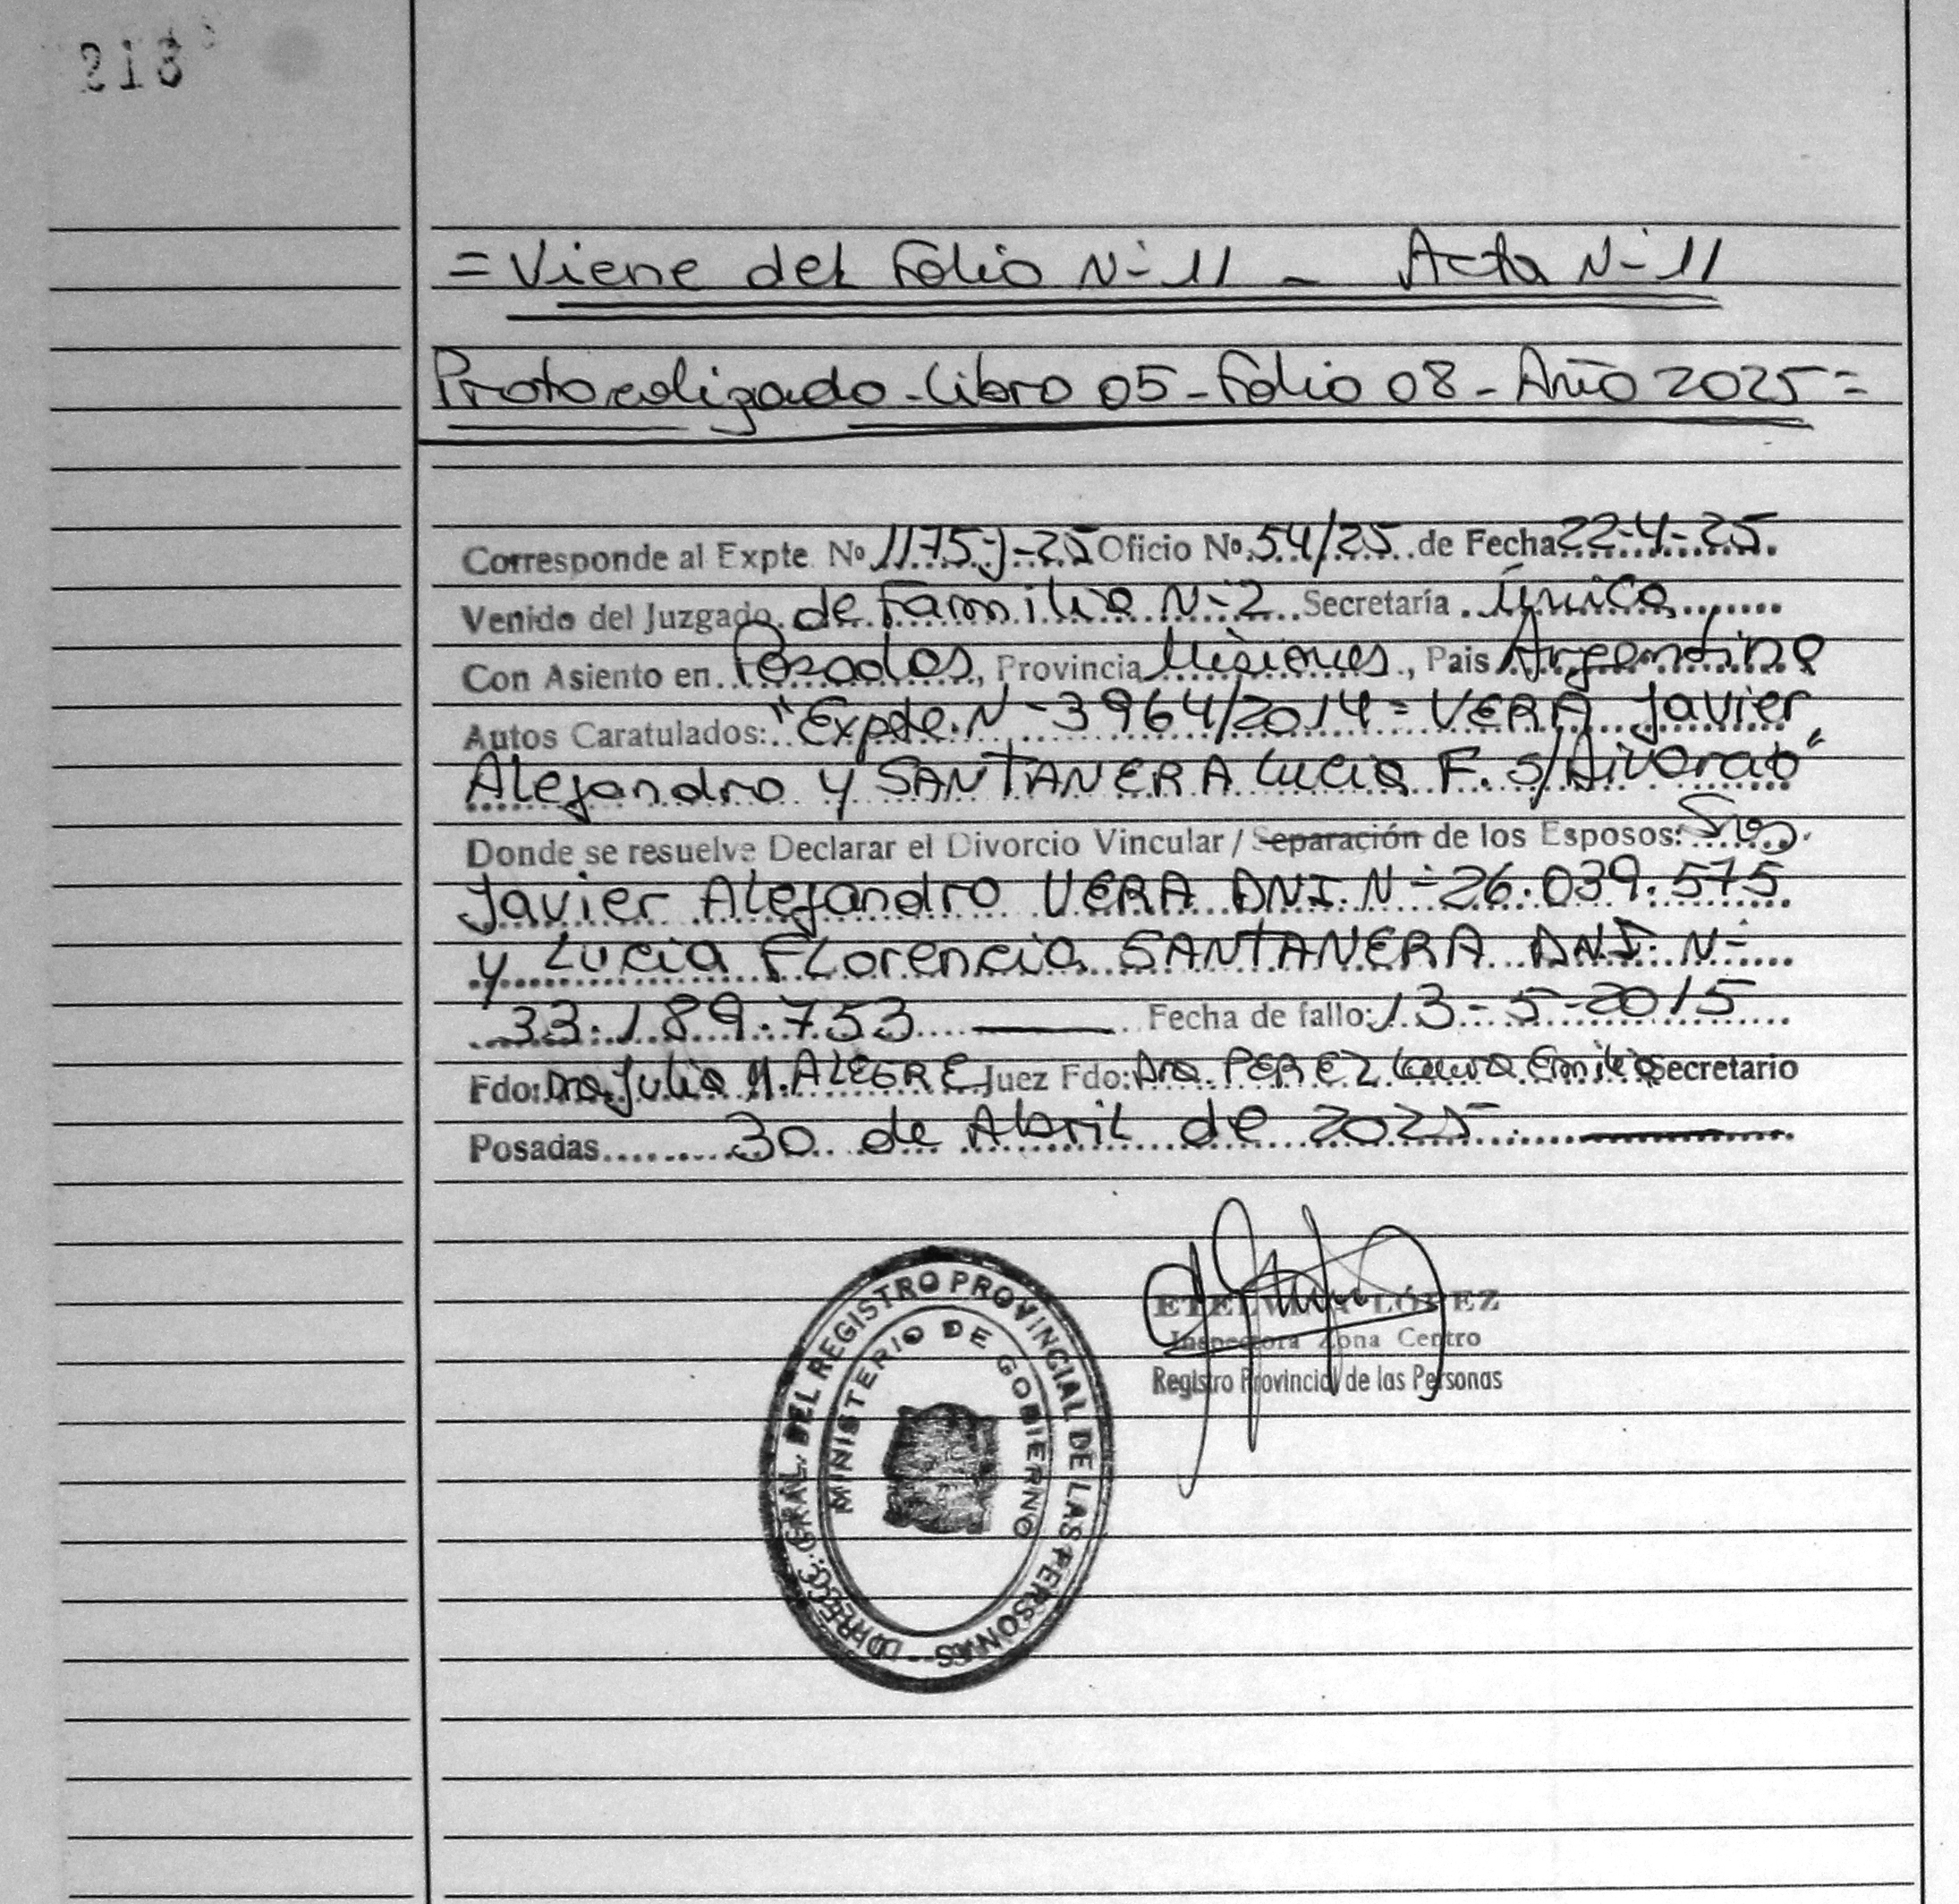 213
= Viene del Folio N- 11 - Acta N- 11
Protocolizado - Libro 05 - Folio 08 - Año 2025 =
Corresponde al Expte. Nº 1175-J-25 Oficio Nº 54/25 de Fecha 22-4-25
Venido del Juzgado de Familia N-2 Secretaría Única
Con Asiento en Posadas, Provincia Misiones, Pais Argentina
Autos Caratulados: "Expte. N- 3964/2014 = VERA Javier
Alejandro y SANTANERA Lucia F. s/Divorcio"
Donde se resuelve Declarar el Divorcio Vincular / Separación de los Esposos: Sres.
Javier Alejandro VERA DNI. N- 26.039.575
y Lucia Florencia SANTANERA DNI. N-
33.189.753 Fecha de fallo: 13-5-2015
Fdo: Dra. Julia M. ALEGRE Juez Fdo: Dra. PEREZ Laura Emilia Secretario
Posadas 30 de Abril de 2025
DIRECC. GRAL. DEL REGISTRO PROVINCIAL DE LAS PERSONAS
MINISTERIO DE GOBIERNO
ETELVINA LÓPEZ
Inspectora Zona Centro
Registro Provincial de las Personas